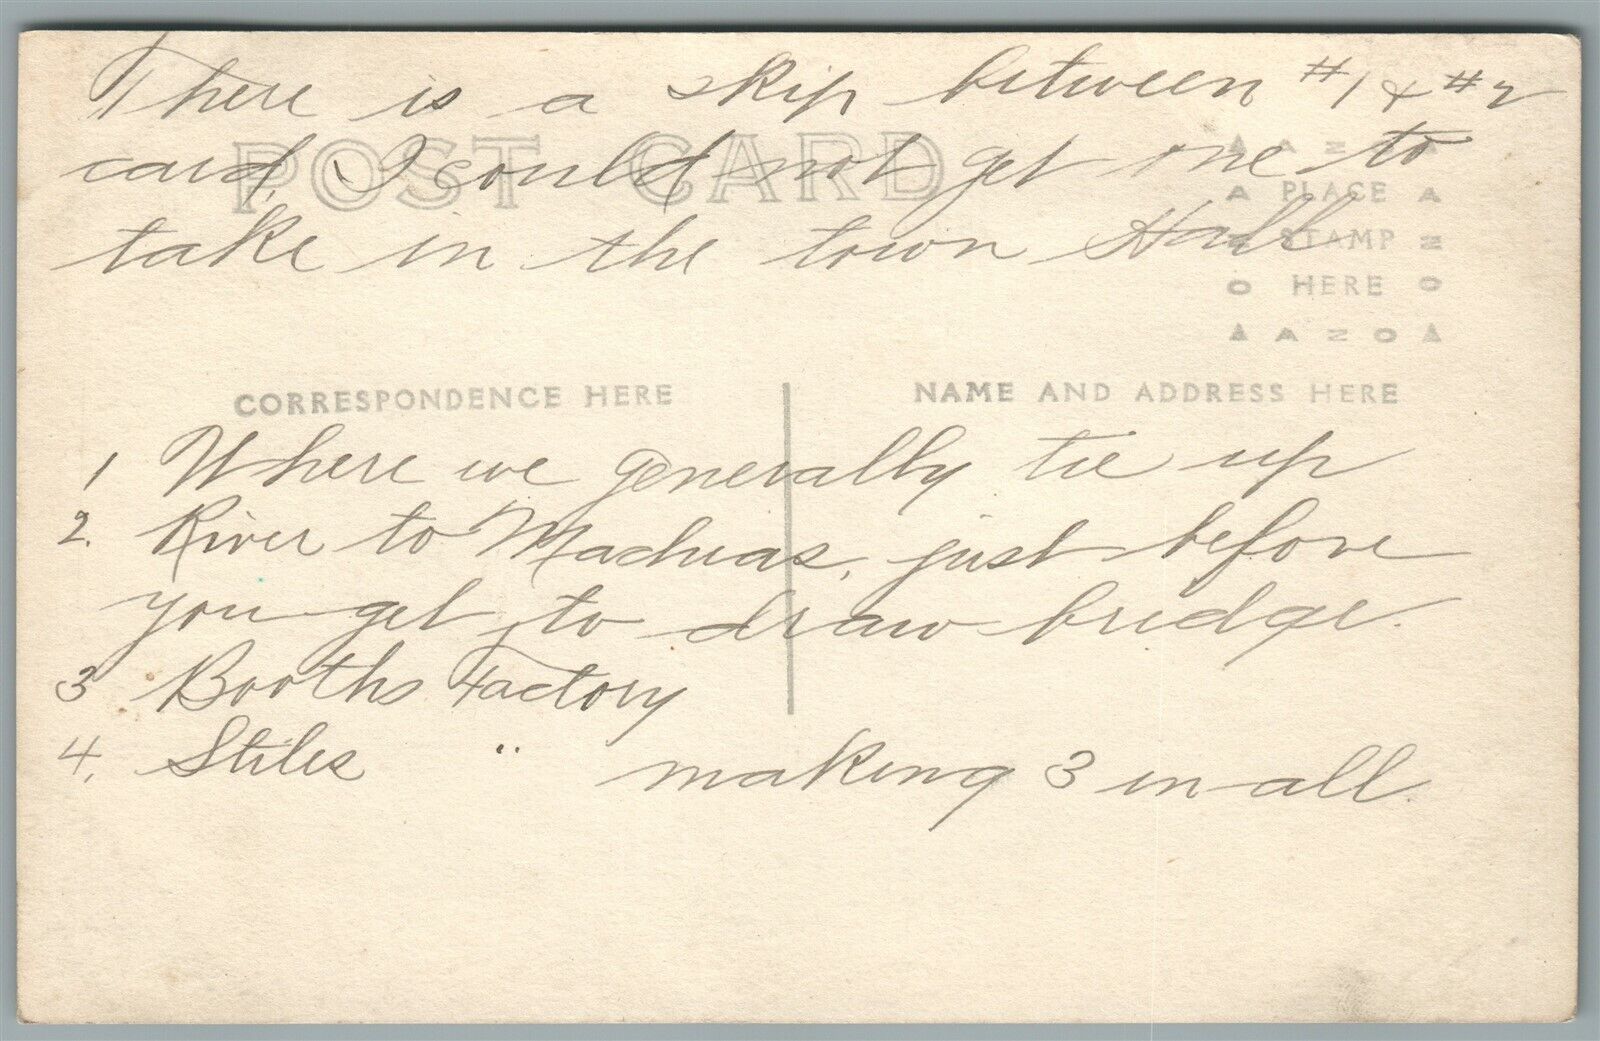 There is a skip between #1 & #2
card, I could not get one to
take in the town Hall
POST CARD
AZO
PLACE
STAMP
HERE
AZO
CORRESPONDENCE HERE
NAME AND ADDRESS HERE
1 Where we generally tie up
2. River to Machias, just before
you get to draw bridge.
3 Booths Factory
4. Stiles " making 3 in all.